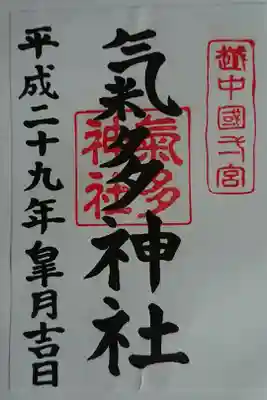 越中國一宮
氣多神社
氣多神社
平成二十九年皐月吉日